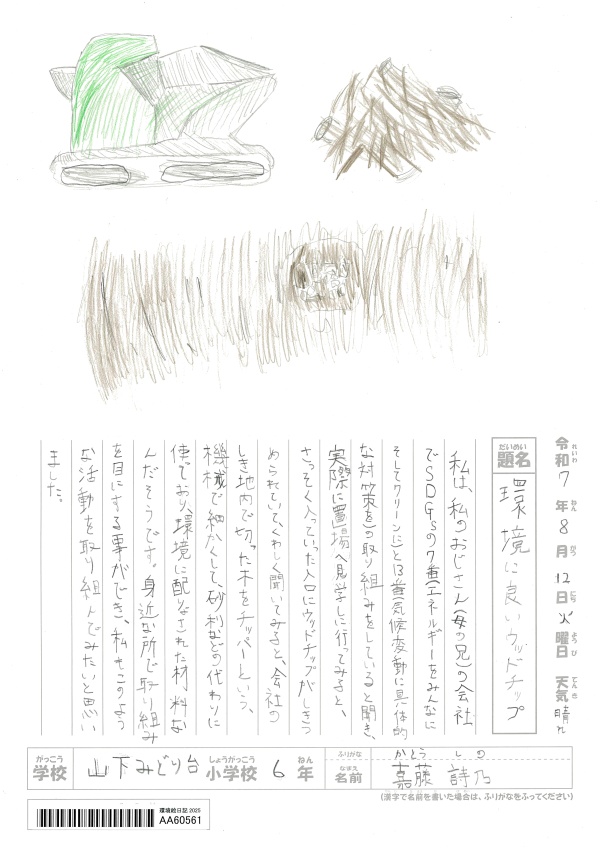 令和7年8月12日火曜日 天気 晴れ
れいわ ねん がつ にち ようび てんき
だいめい
題名 環境に良いウッドチップ
私は、私のおじさん(母の兄)の会社
でSDGsの7番(エネルギーをみんなに
そしてクリーンに)と13番(気候変動に具体的
な対策を)の取り組みをしていると聞き、
実際に置場へ見学しに行ってみると、
さっそく入っていった入口にウッドチップがしきつ
められていて、くわしく聞いてみると、会社の
しき地内で切った木をチッパーという、
機械で細かくして、砂利などの代わりに
使っており、環境に配りょされた材料な
んだそうです。身近な所で取り組み
を目にする事ができ、私もこのよう
な活動を取り組んでみたいと思い
ました。
がっこう しょうがっこう ねん ふりがな かとう しの
学校 山下みどり台 小学校 6年 なまえ 名前 嘉藤 詩乃
(漢字で名前を書いた場合は、ふりがなをふってください)
環境絵日記 2025
AA60561